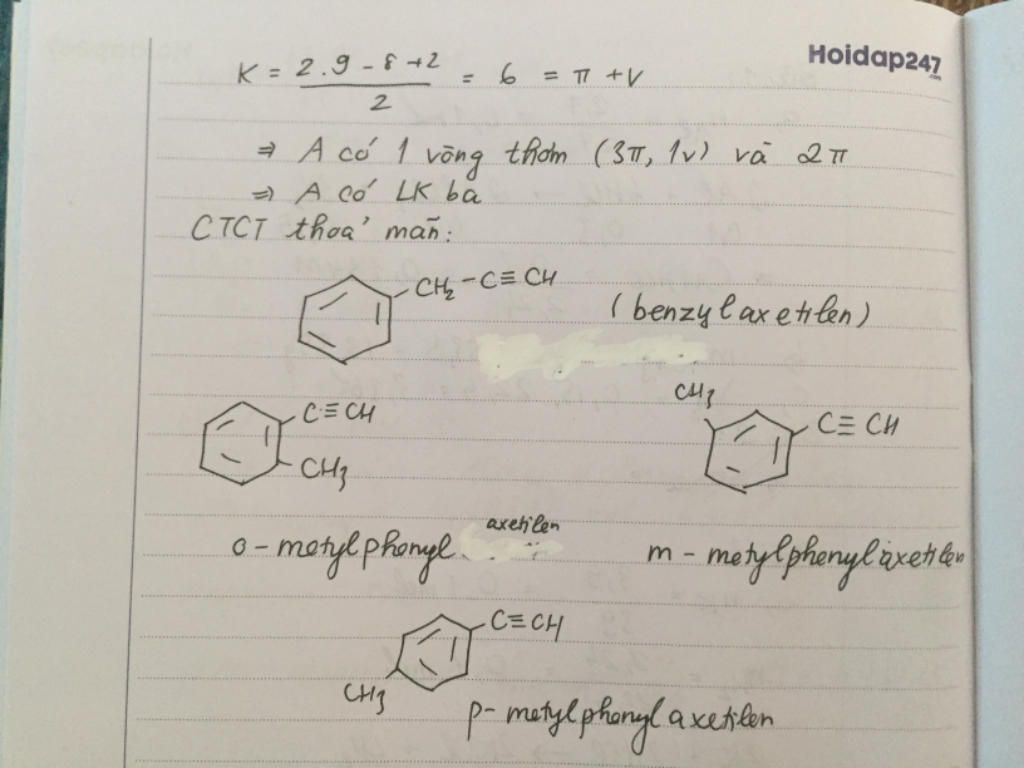 Hoidap247
.com
K = 2.9 - 8 + 2 / 2 = 6 = π + v
⇒ A có 1 vòng thơm (3π, 1v) và 2π
⇒ A có LK ba
CTCT thoả mãn:
CH2 - C ≡ CH
(benzyl axetilen)
C ≡ CH
CH3
CH3
C ≡ CH
o - metylphenyl axetilen
m - metylphenylaxetilen
C ≡ CH
CH3
p - metylphenylaxetilen